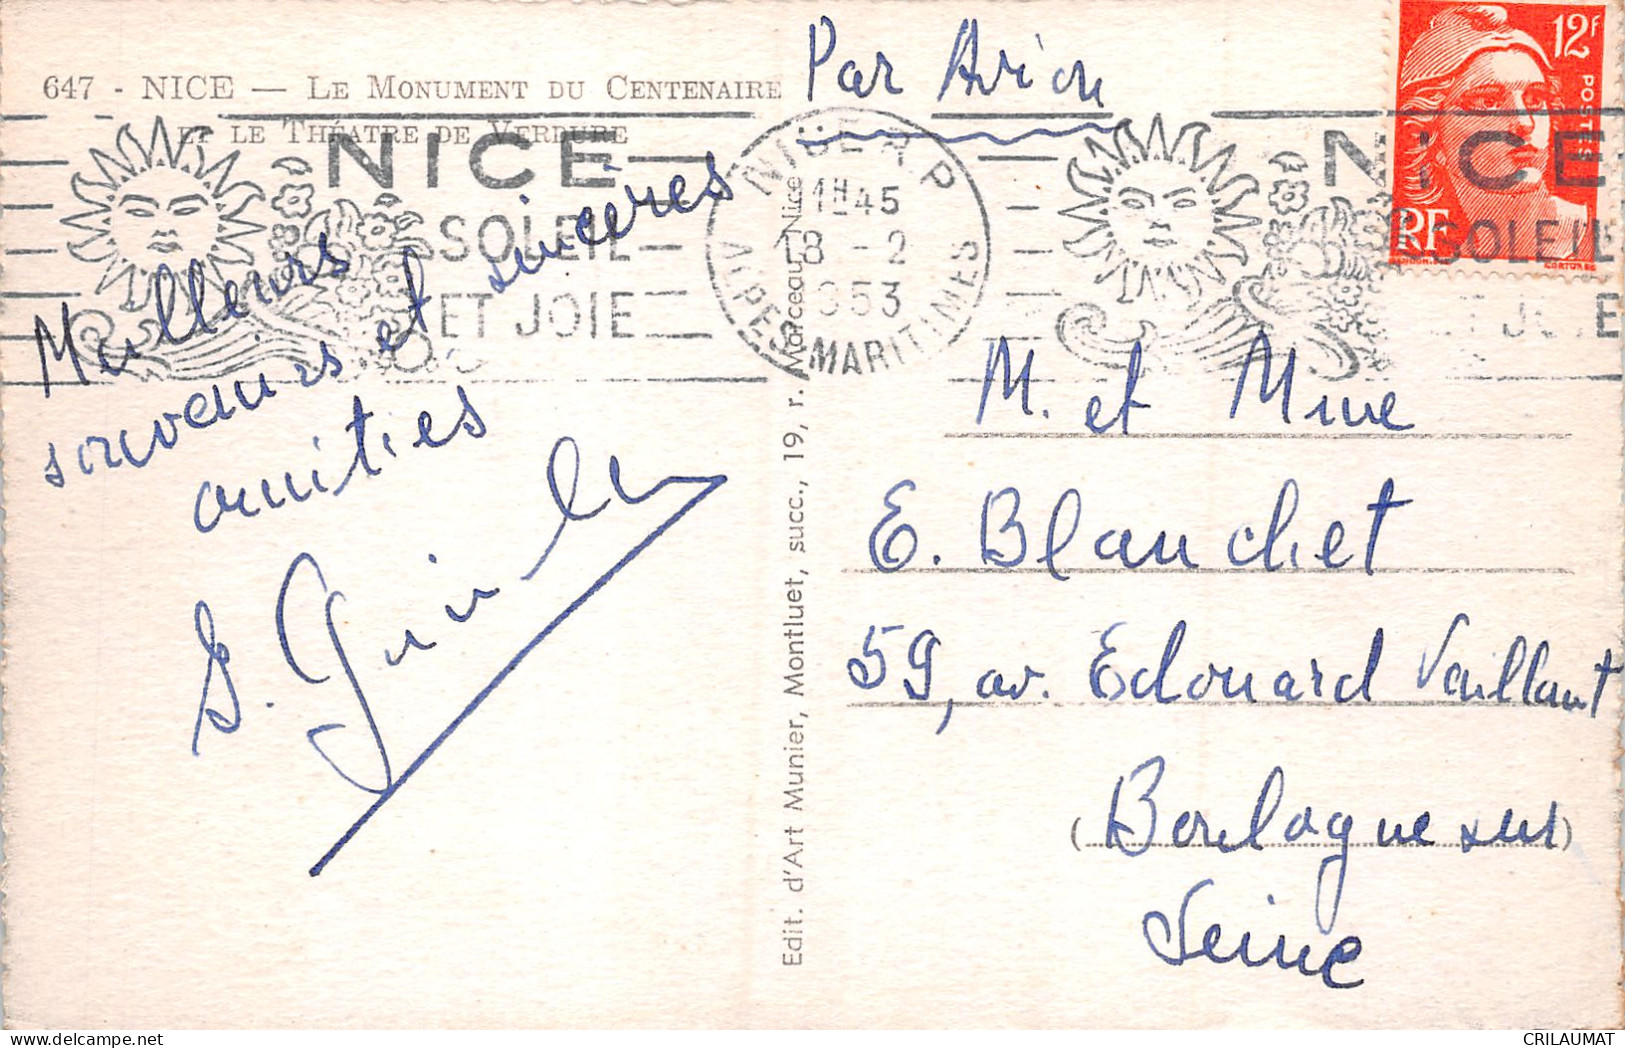 647 - NICE — LE MONUMENT DU CENTENAIRE
ET LE THÉATRE DE VERDURE
Par Avion
NICE
SOLEIL
ET JOIE
NICE R.P
1H45
8 - 2
1953
ALPES MARITIMES
NICE
SOLEIL
ET JOIE
12F
POSTES
RF
GANDON
CORTURES
Meilleurs
souvenirs et sincères
amitiés
M. et Mme
E. Blanchet
59, av. Edouard Vaillant
(Boulogne sur)
Seine
Edit. d'Art Munier, Montluet, succ., 19, r. Marceau, Nice
CRILAUMAT